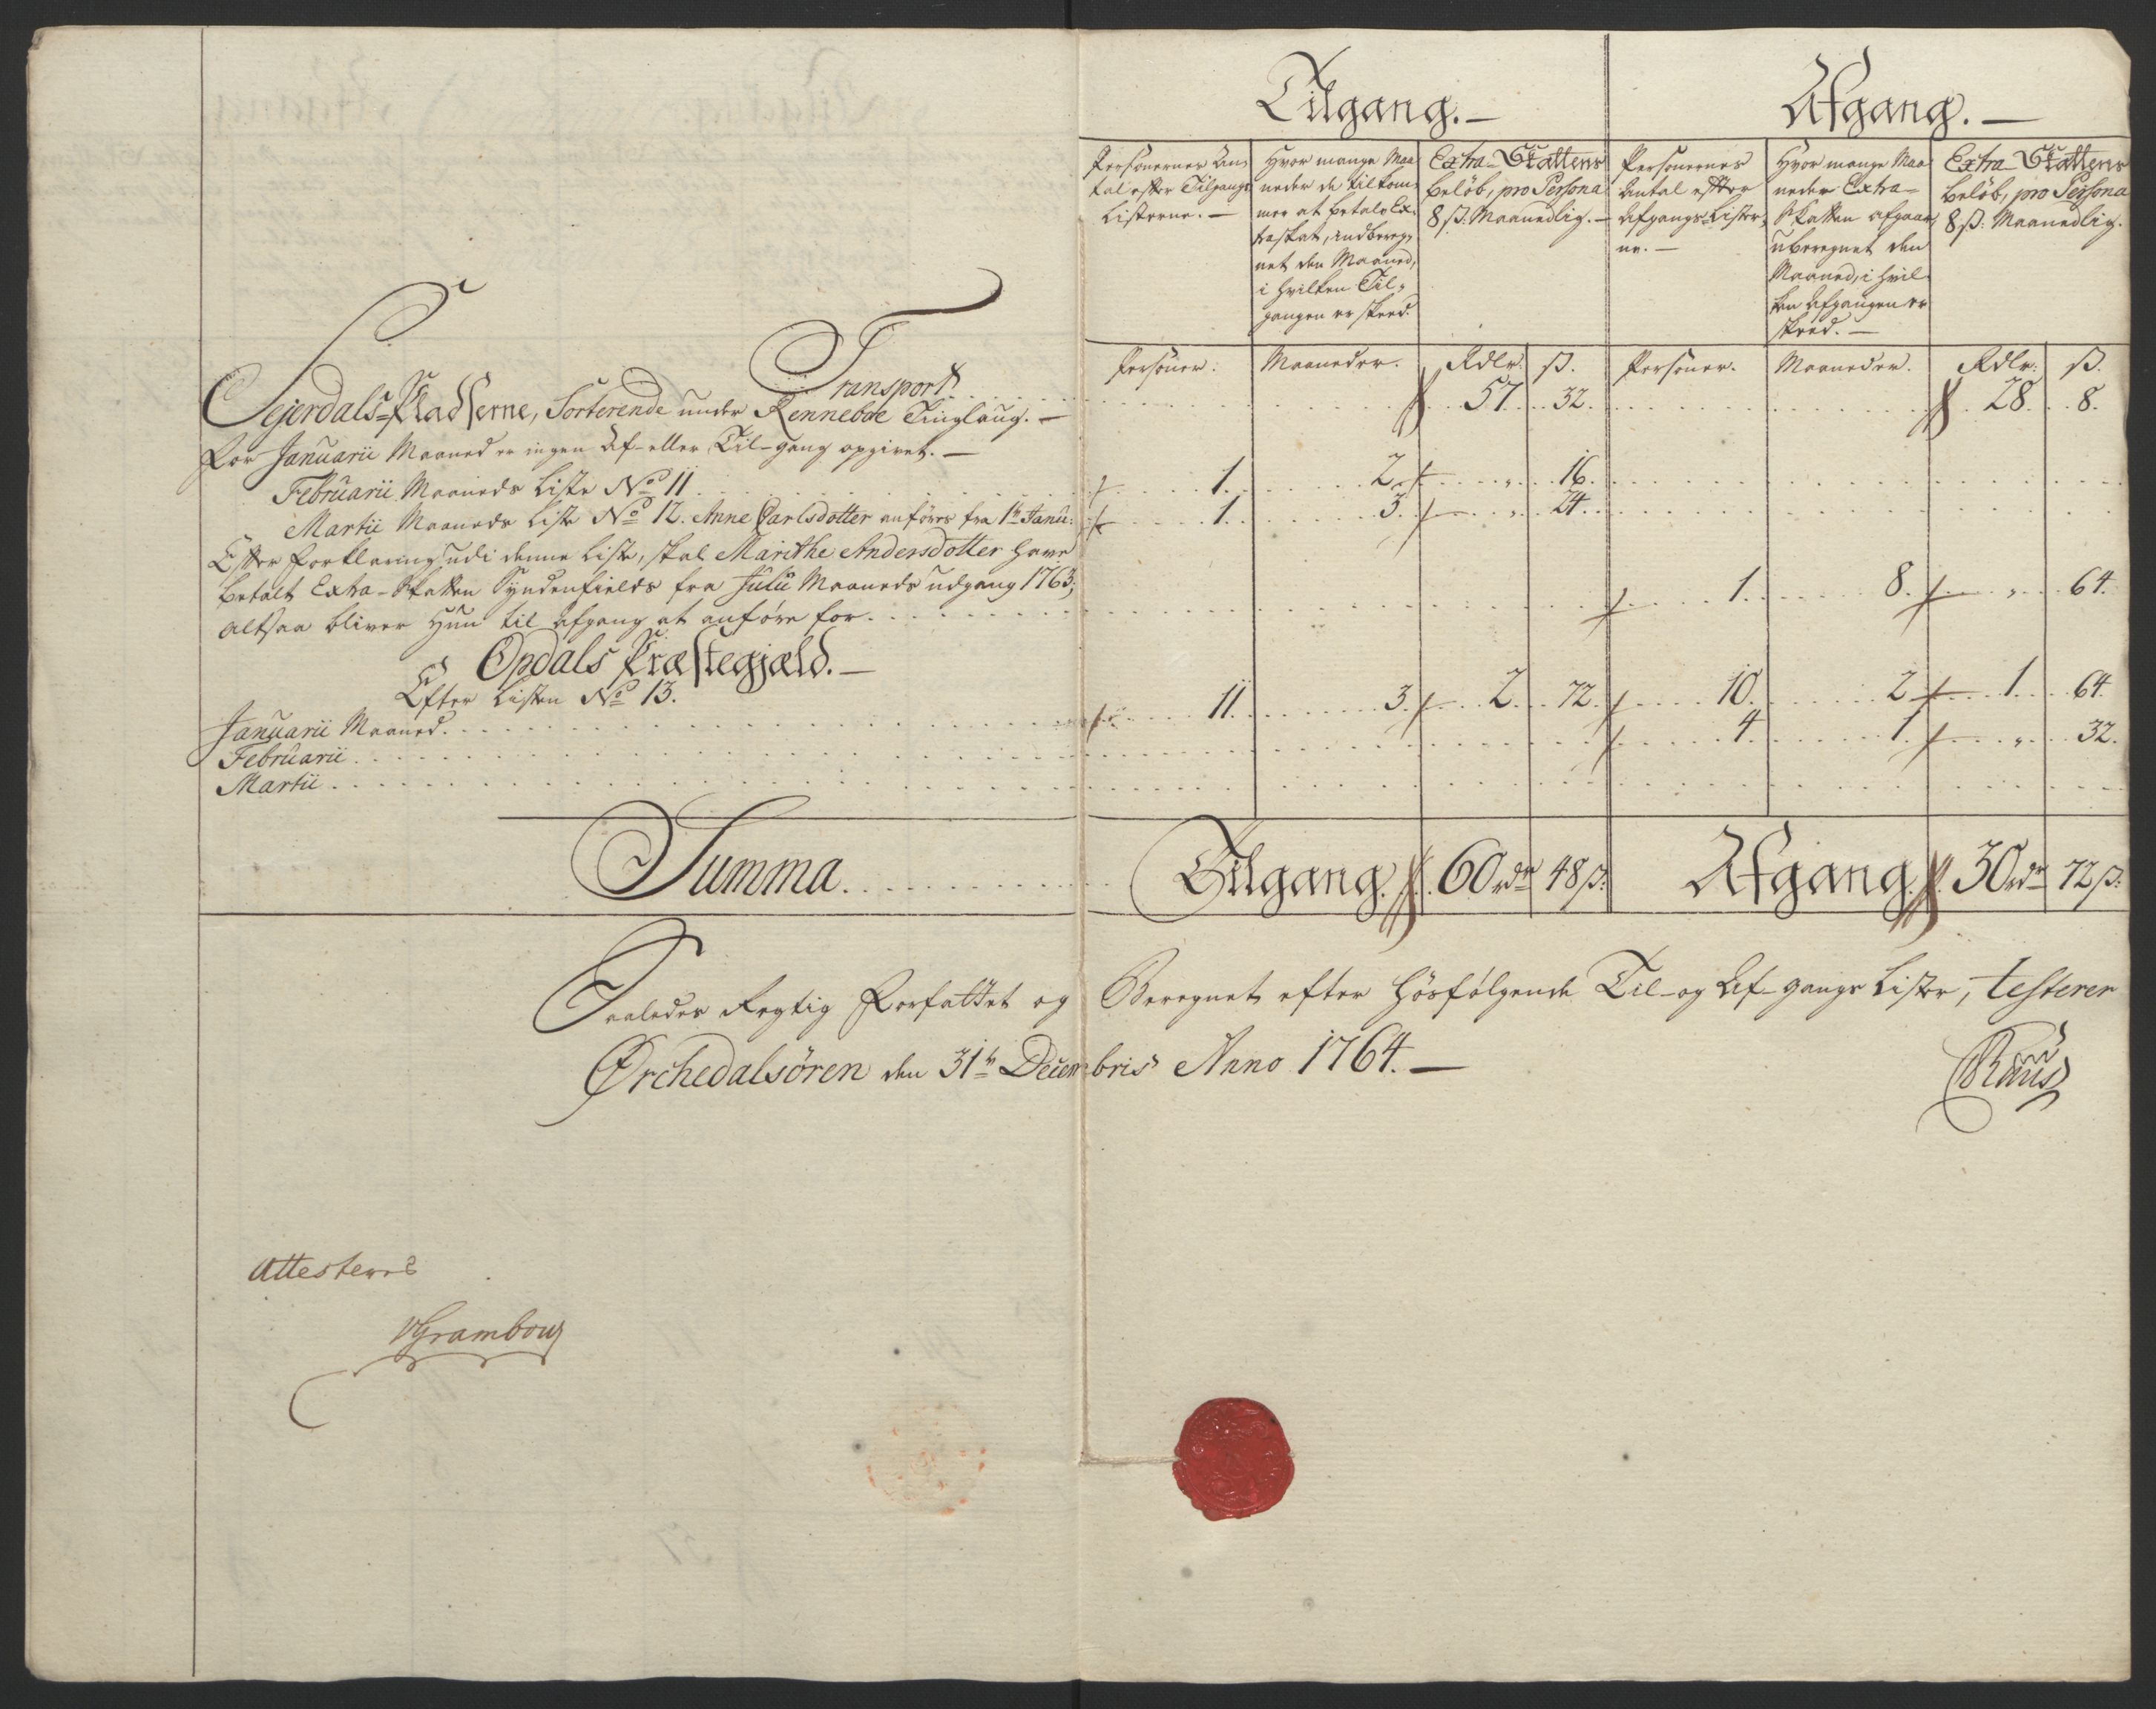 Tilgang. —
Afgang. —
Personernes An-
tal efter Tilgangs
Listerne. —
Hvor mange Maa-
neder de tilkom-
mer at betale Ex-
traskat, indbereg-
net den Maaned,
i hvilken Til-
gangen er skeed.
Extra-Skattens
Beløb, pro Persona
8 ß. Maanedlig. —
Personernes
Antal efter
Afgangs-Lister-
ne. —
Hvor mange Maa-
neder Extra-
Skatten afgaar,
uberegnet den
Maaned, i hvil-
ken Afgangen er
skeed. —
Extra-Skattens
Beløb, pro Persona
8 ß. Maanedlig.
Personer. Maaneder. Rdlr. ß. Personer. Maaneder. Rdlr. ß.
Transport . . . 57. 32. . . . 28. 8.
Sejerdals-Pladserne, Sorterende under Renneboe Tinglaug. —
For Januarii Maaned er ingen Af- eller Til-gang opgivet. —
Februarii Maaneds Liste No 11 . . . 1. 2. " 16.
Martii Maaneds Liste No 12. Anne Carlsdotter anføres fra 1te Janu: 1. 3. " 24.
Efter Forklaring udi denne Liste, skal Marithe Andersdotter have
betalt Extra-Skatten Syndenfields fra Julii Maaneds udgang 1763,
altsaa bliver Hun til afgang at anføre for . . . 1. 8. " 64.
Opdals Præstegjæld. —
Efter Listen No 13.
Januarii Maaned . . . 11. 3. 2. 72. 10. 2. 1. 64.
Februarii . . . 4. 1. " 32.
Martii . . .
Summa . . . Tilgang. 60 rdr 48 ß: Afgang. 30 rdr 72 ß:
Saaledes Rigtig Forfattet og Beregnet efter hosfølgende Til- og Af-gangs Lister, testerer
Ørchedalsøren den 31te Decembris Anno 1764. —
Attesteres